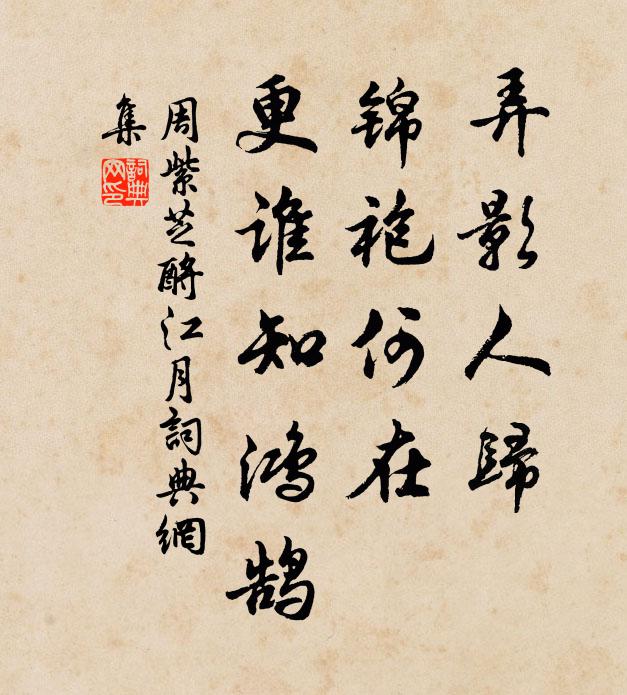 弄影人歸
锦袍何在
更谁知鸿鹄
周紫芝酹江月詞典網
集
詞典网印